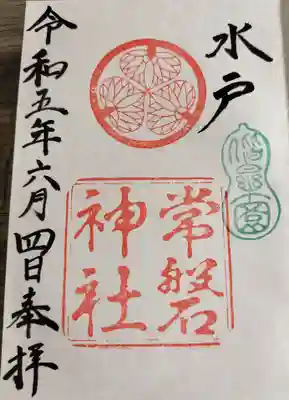 水戸
偕楽園
常磐
神社
令和五年六月四日奉拝